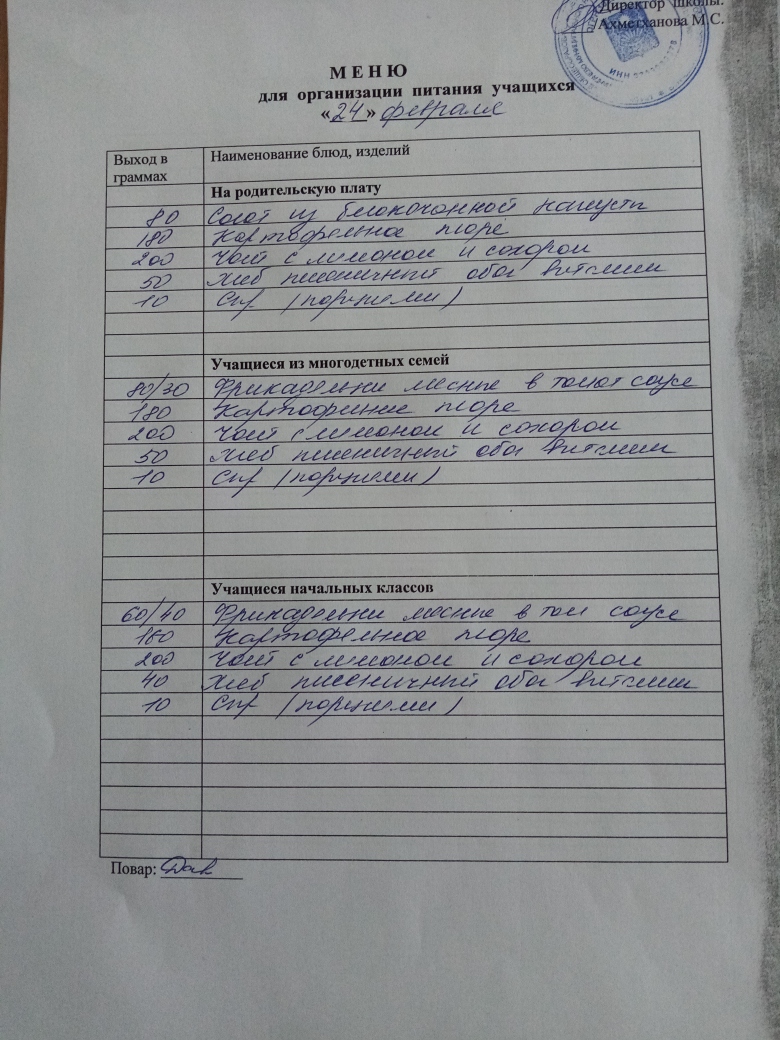 Директор школы:
Ахметханова М.С.
ИНН
М Е Н Ю
для организации питания учащихся
«24» февраля
Выход в граммах Наименование блюд, изделий
На родительскую плату
80 Салат из белокочанной капусты
180 Картофельное пюре
200 Чай с лимоном и сахаром
50 Хлеб пшеничный обог витамин
10 Сыр (порциями)
Учащиеся из многодетных семей
80/30 Фрикадельки мясные в томат соусе
180 Картофельное пюре
200 Чай с лимоном и сахаром
50 Хлеб пшеничный обог витамин
10 Сыр (порциями)
Учащиеся начальных классов
60/40 Фрикадельки мясные в том соусе
180 Картофельное пюре
200 Чай с лимоном и сахаром
40 Хлеб пшеничный обог витамин
10 Сыр (порциями)
Повар: